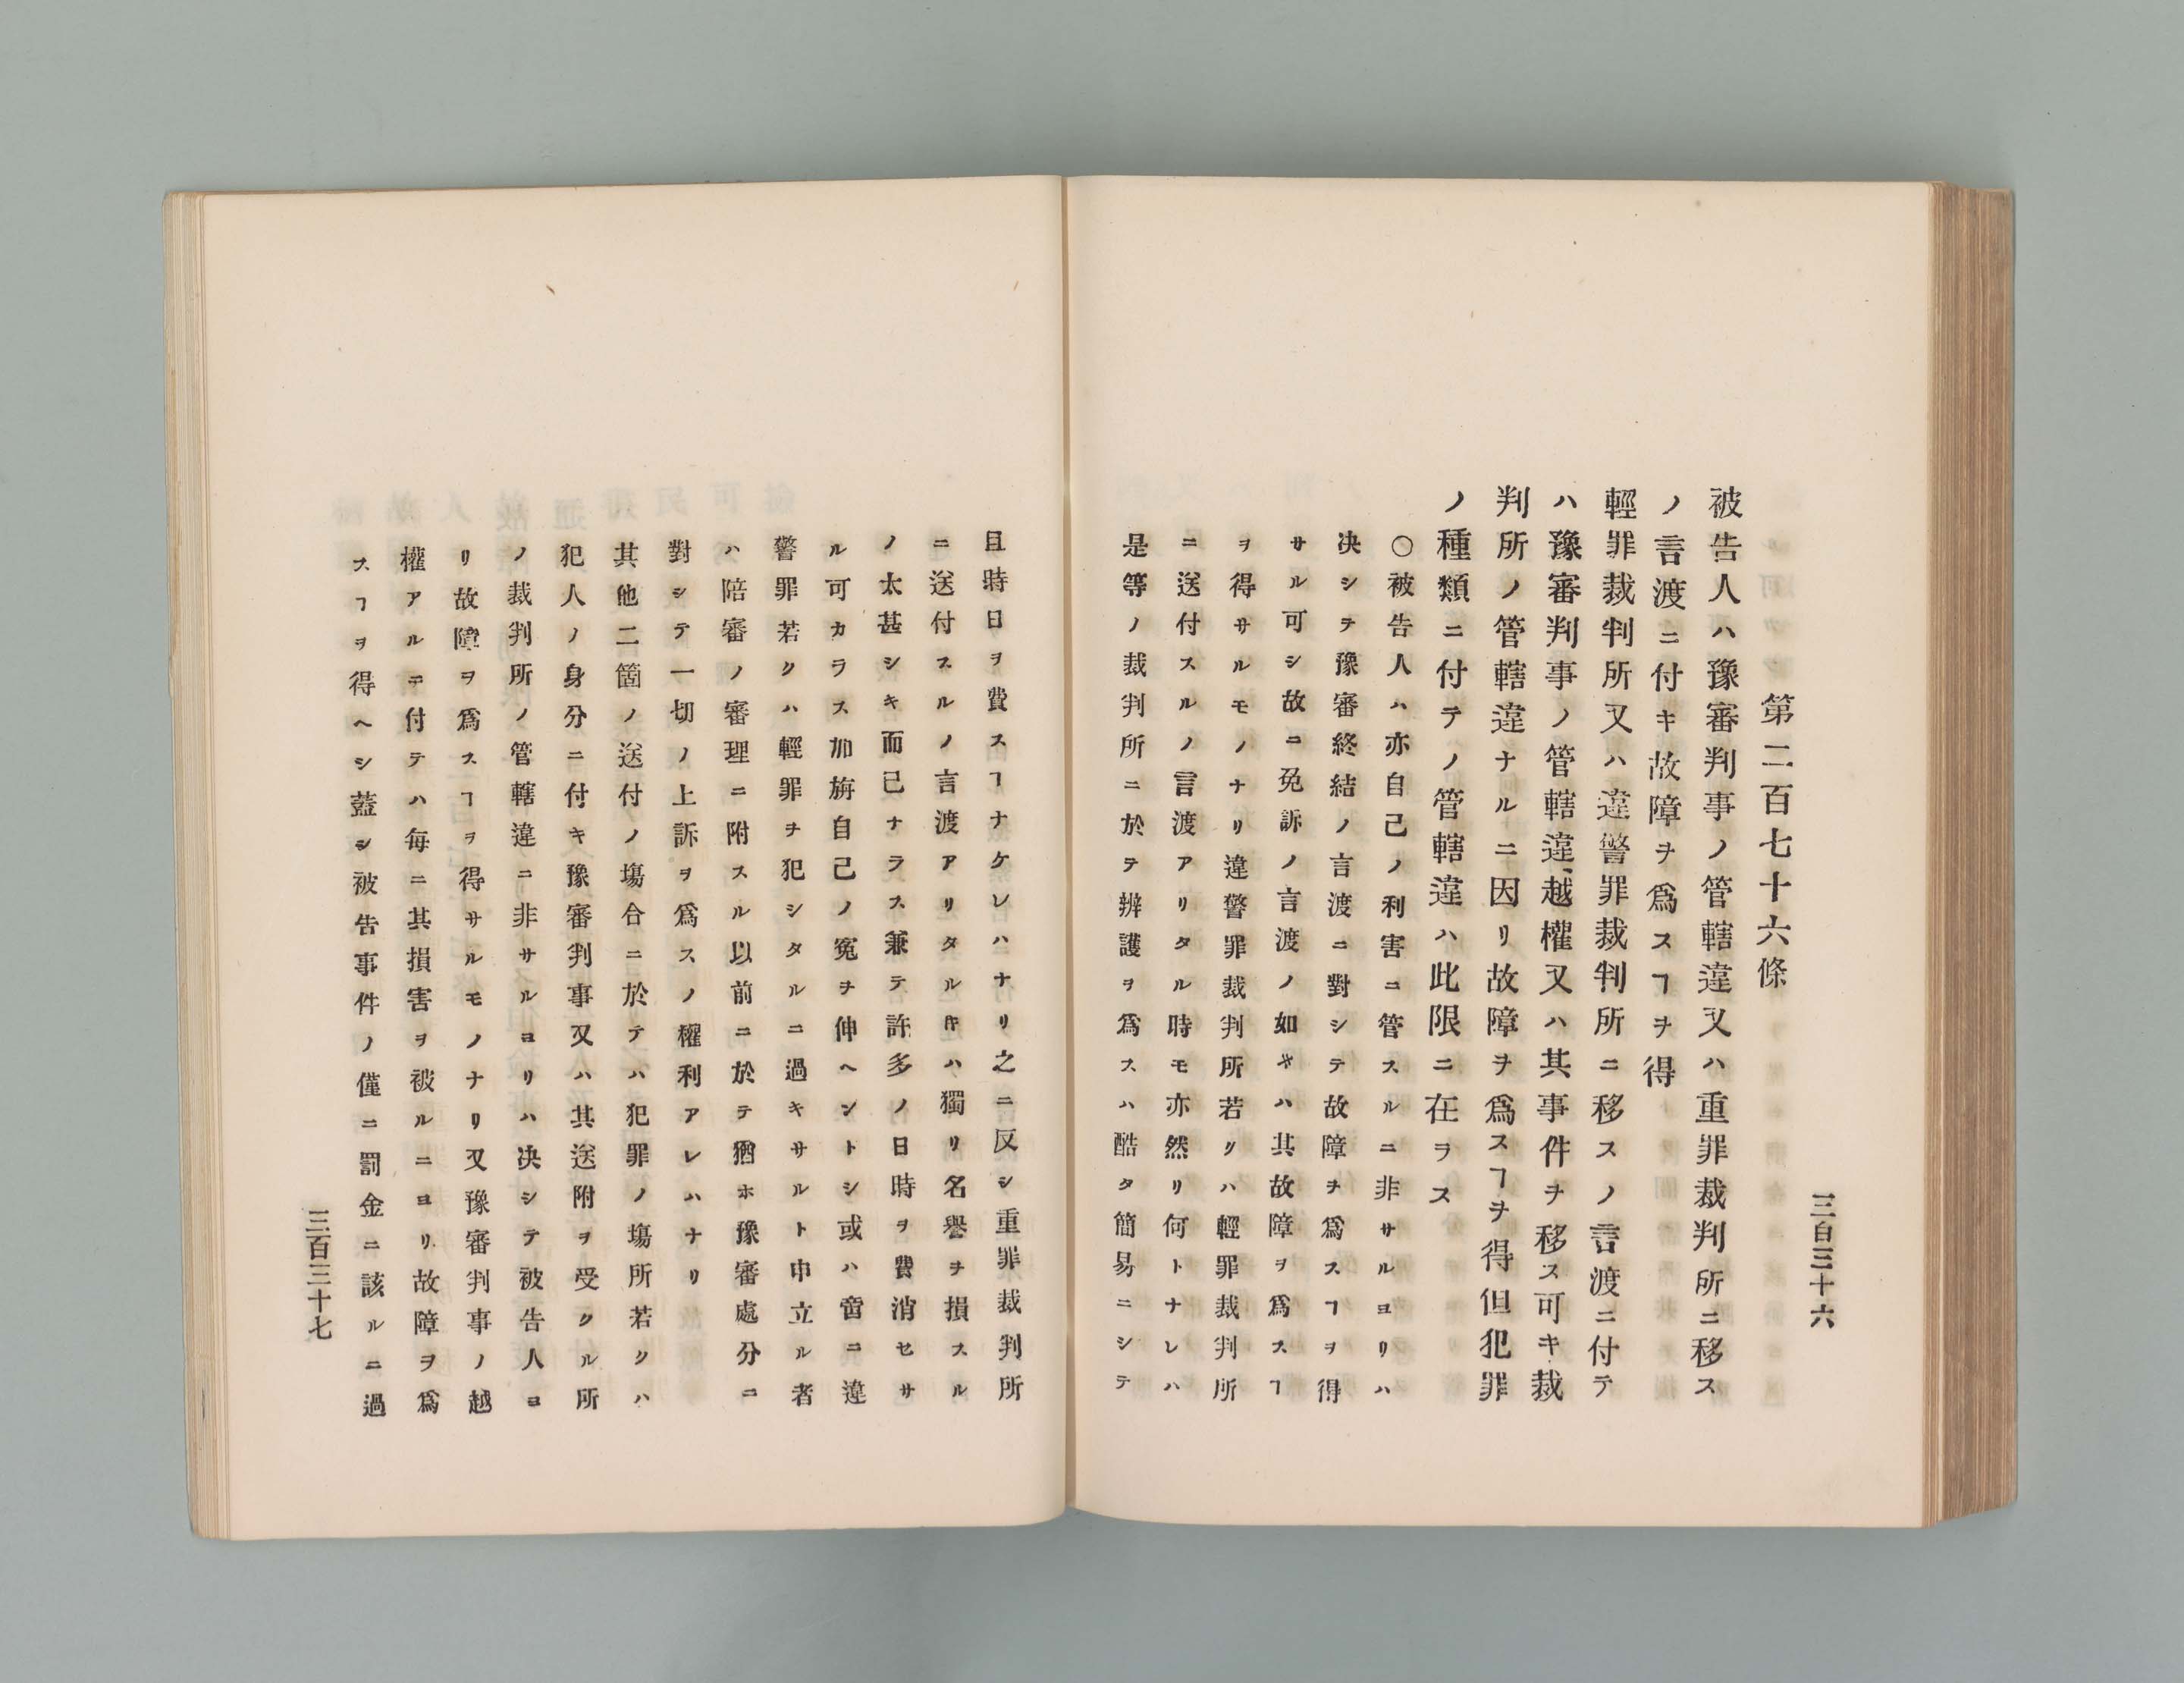 三百三十六
第二百七十六條
被告人ハ豫審判事ノ管轄違又ハ重罪裁判所ニ移ス
ノ言渡ニ付キ故障ヲ爲スヿヲ得
輕罪裁判所又ハ違警罪裁判所ニ移スノ言渡ニ付テ
ハ豫審判事ノ管轄違、越權又ハ其事件ヲ移ス可キ裁
判所ノ管轄違ナルニ因リ故障ヲ爲スヿヲ得但犯罪
ノ種類ニ付テノ管轄違ハ此限ニ在ラス
○被告人ハ亦自己ノ利害ニ管スルニ非サルヨリハ
决シテ豫審終結ノ言渡ニ對シテ故障ヲ爲スヿヲ得
サル可シ故ニ免訴ノ言渡ノ如キハ其故障ヲ爲スヿ
ヲ得サルモノナリ違警罪裁判所若クハ輕罪裁判所
ニ送付スルノ言渡アリタル時モ亦然リ何トナレハ
是等ノ裁判所ニ於テ辨護ヲ爲スハ酷タ簡易ニシテ
且時日ヲ費スヿナケレハナリ之ニ反シ重罪裁判所
ニ送付スルノ言渡アリタル𬼀ハ獨リ名譽ヲ損スル
ノ太甚シキ而已ナラス兼テ許多ノ日時ヲ費消セサ
ル可カラス加旃自己ノ寃ヲ伸ヘントシ或ハ啻ニ違
警罪若クハ輕罪ヲ犯シタルニ過キサルト申立ル者
ハ陪審ノ審理ニ附スル以前ニ於テ猶ホ豫審處分ニ
對シテ一切ノ上訴ヲ爲スノ權利アレハナリ
其他二箇ノ送付ノ塲合ニ於テハ犯罪ノ塲所若クハ
犯人ノ身分ニ付キ豫審判事又ハ其送附ヲ受クル所
ノ裁判所ノ管轄違ニ非サルヨリハ决シテ被告人ヨ
リ故障ヲ爲スヿヲ得サルモノナリ又豫審判事ノ越
權アルニ付テハ毎ニ其損害ヲ被ルニヨリ故障ヲ爲
スヿヲ得ヘシ蓋シ被告事件ノ僅ニ罰金ニ該ルニ過
三百三十七